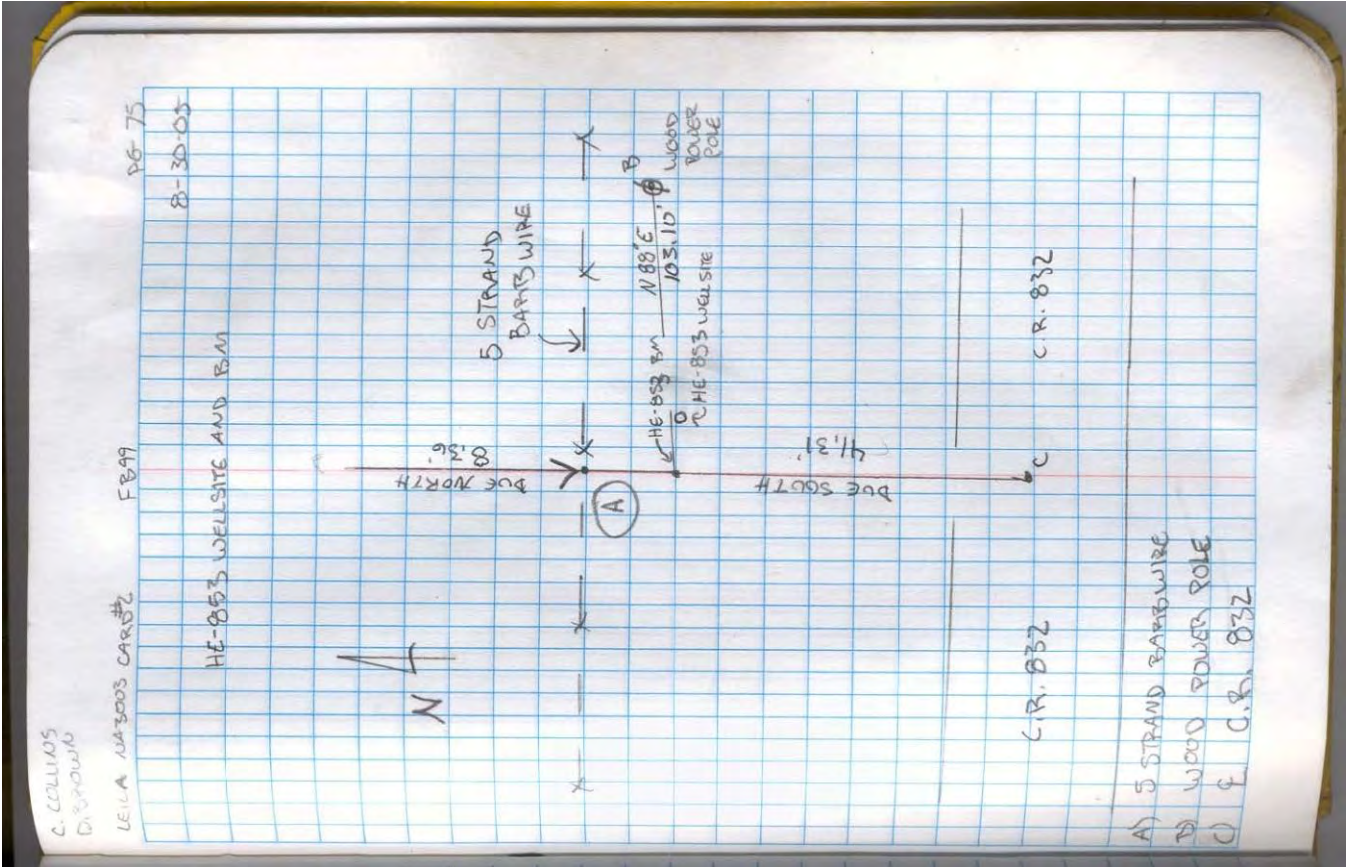 C. COLLINS
D. BROWN
LEICA NA3003 CARD #2 FB99 PG 75
8-30-05
HE-853 WELLSITE AND BM
N
5 STRAND
BARBWIRE
DUE NORTH
8.36'
A
HE-853 BM
N 88°E
103.10'
B
WOOD
POWER
POLE
HE-853 WELLSITE
DUE SOUTH
41.31'
C.R. 832
C
C.R. 832
A) 5 STRAND BARBWIRE
B) WOOD POWER POLE
C) ℄ C.R. 832